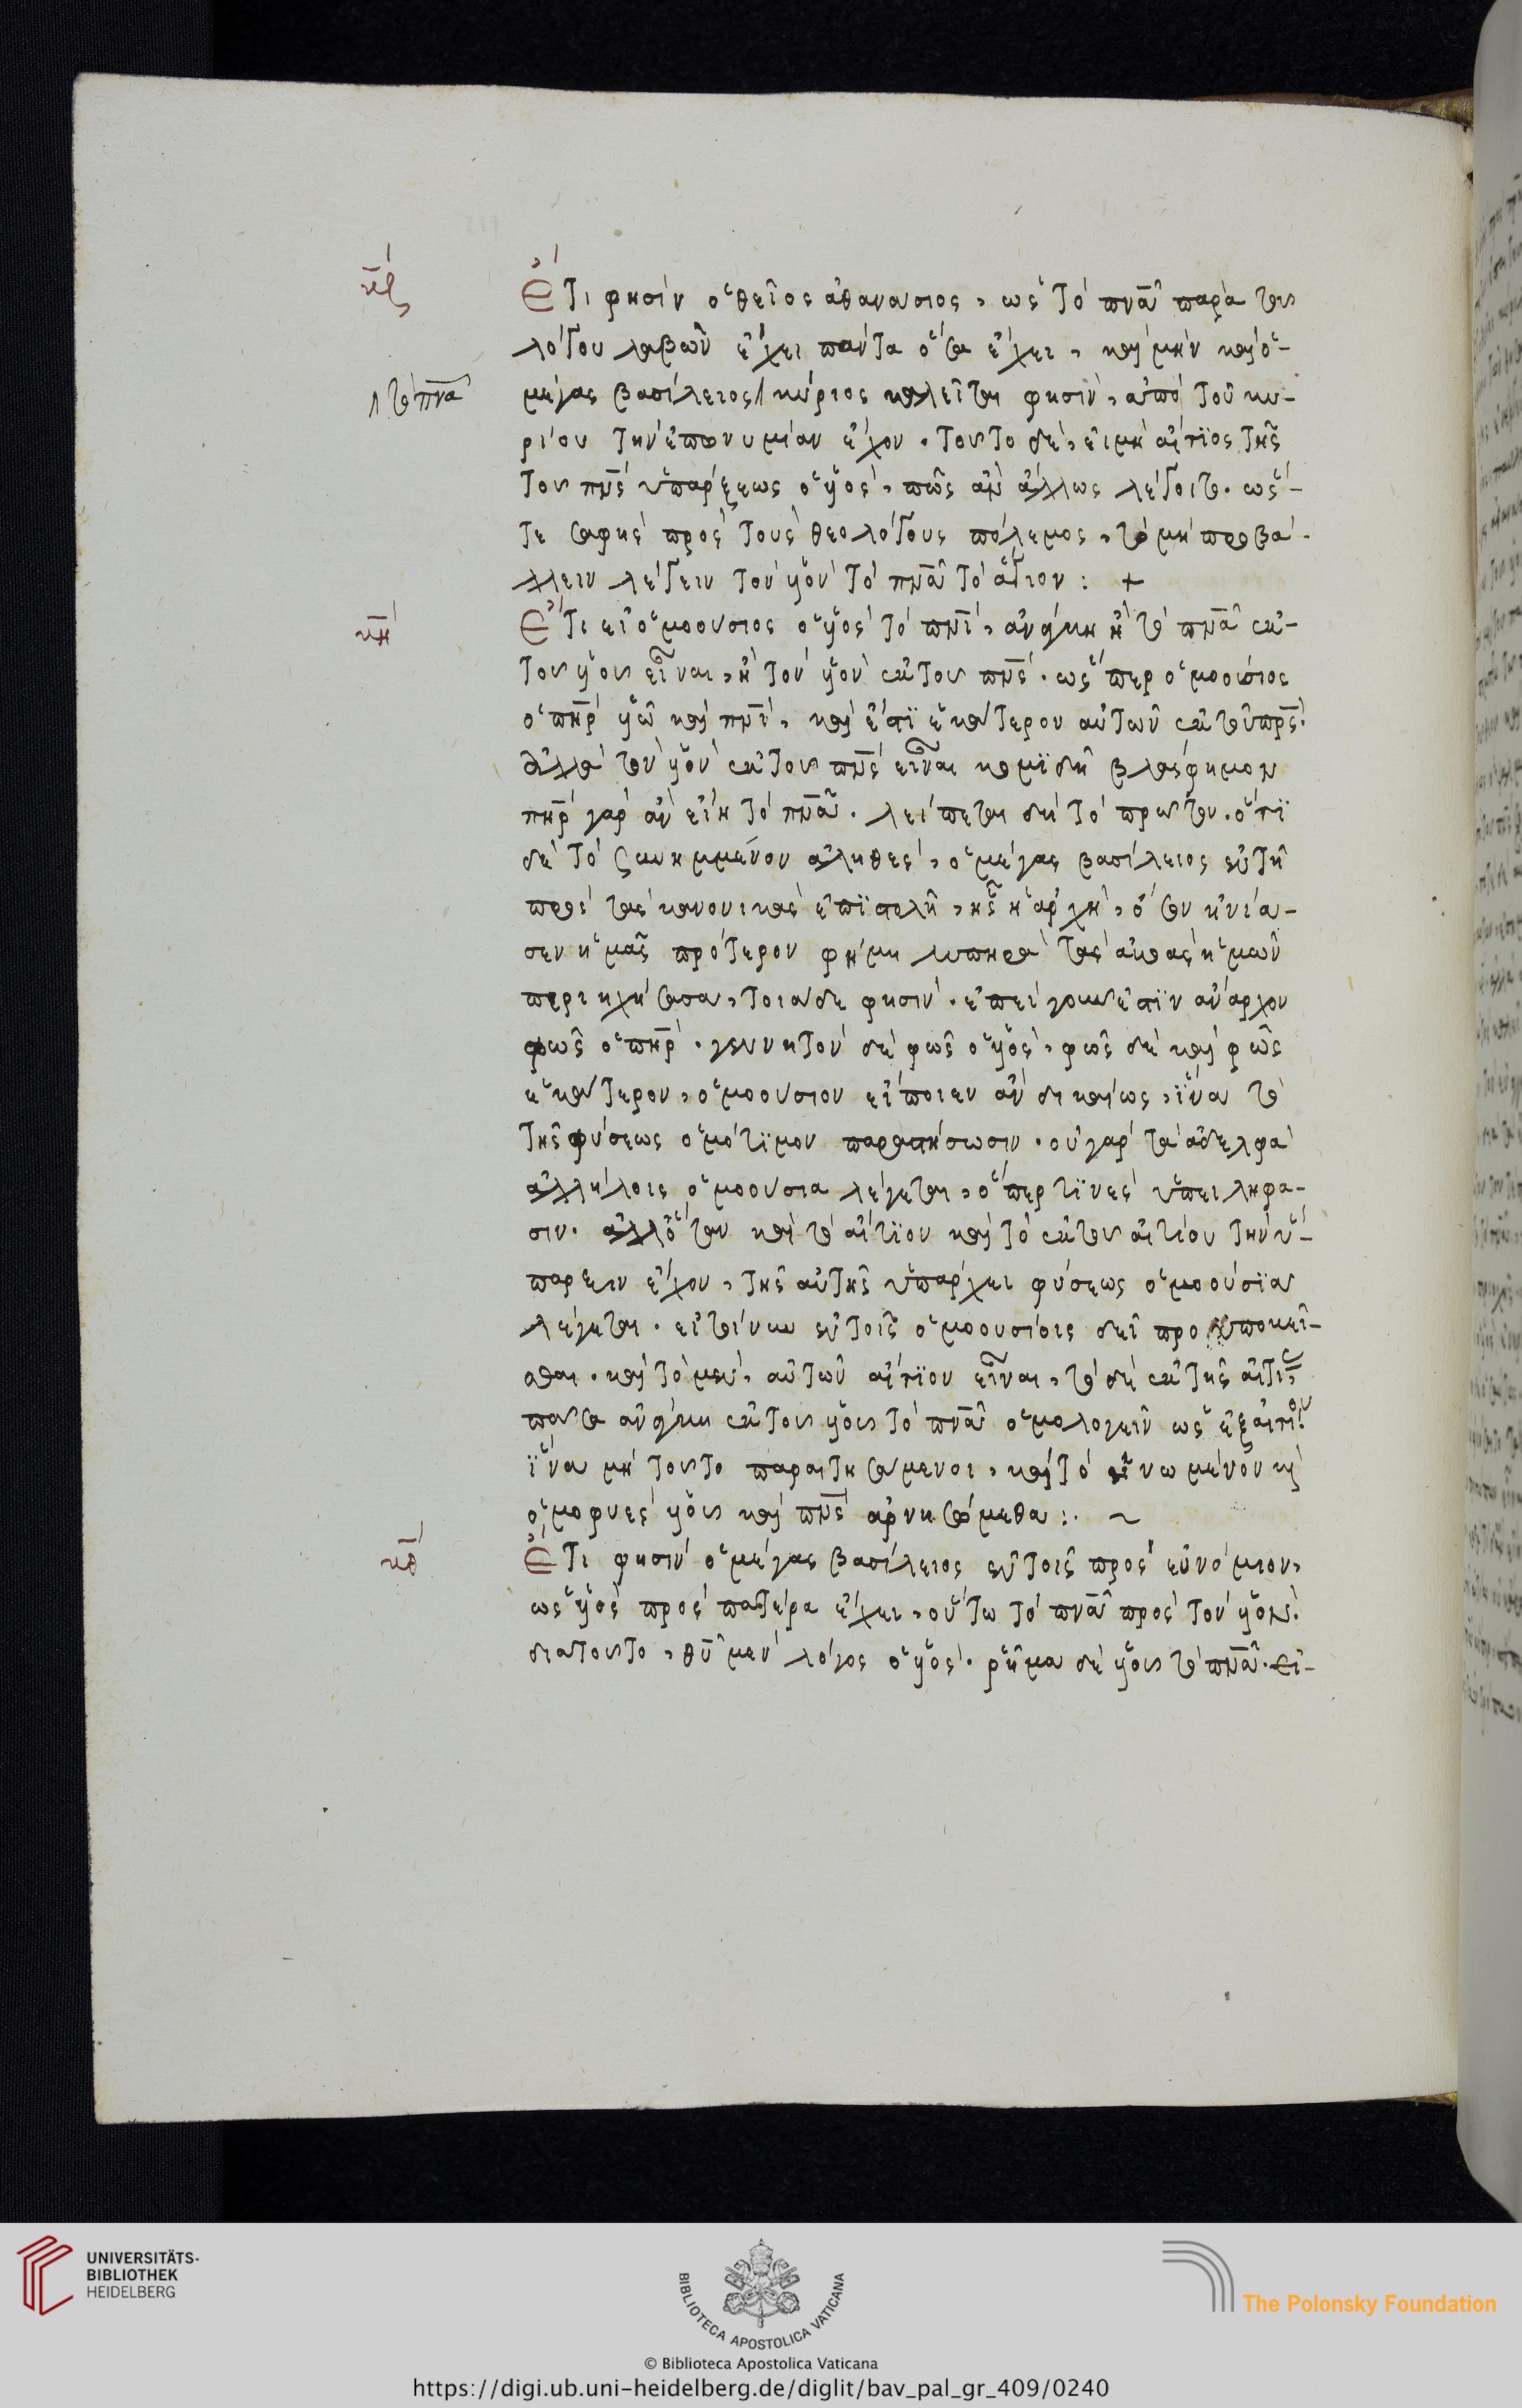 κζ´
Ἔτι φησὶν ὁ θεῖος ἀθανάσιος, ὡς τὸ πνᾶ παρὰ του
λόγου λαβὸν ἔχει πάντα ὅσα ἔχει, καὶ μὴν καὶ ὁ-
τὸ πνᾶ
μέγας βασίλειος κύριος καλεῖται φησὶν, ἀπὸ τοῦ κυ-
ρίου τὴν ἐπωνυμίαν ἔχον. τουτο δὲ, εἰ μὴ αἴτιος τῆς
του πνς ὑπάρξεως ὁ υἱὸς, πῶς ἂν ἄλλως λέγοιτο. ὥσ-
τε σαφὴς πρὸς τοὺς θεολόγους πόλεμος, τὸ μὴ προβά-
λλειν λέγειν τὸν υἱὸν τὸ πνᾶ τὸ ἅγιον: +
κη´
Ἔτι εἰ ὁμοούσιος ὁ υἱὸς τῷ πνι, ἀνάγκη ἢ τὸ πνᾶ ἐκ
του υἱου εἶναι, ἢ τὸν υἱὸν ἐκ του πνς. ὥσπερ ὁμοούσιος
ὁ πηρ υἱῷ καὶ πνι, καὶ ἔστι ἑκάτερον αὐτῶν ἐκ τοῦ πρς.
ἀλλὰ τὸν υἱὸν ἐκ του πνς εἶναι κομιδῆ βλάσφημον
πηρ γὰρ ἂν εἴη τὸ πνᾶ. λείπεται δὴ τὸ πρωτον. ὅτι
δὲ τὸ συνημμένον ἀληθὲς, ὁ μέγας βασίλειος ἐν τῆ
πρὸς τὰς κανονικὰς ἐπιστολῆ, ἧς ἡ ἀρχὴ, ὅσον ἠνία-
σεν ἡμᾶς πρότερον φήμη λυπηρὰ τὰς ἀκοὰς ἡμῶν
περιηχήσασα, τοιάδε φησὶν. ἐπεὶ γουν ἐστὶν ἄναρχον
φῶς ὁ πηρ. γεννητὸν δὲ φῶς ὁ υἱὸς, φῶς δὲ καὶ φῶς
ἑκάτερον, ὁμοούσιον εἴποιεν ἂν δικαίως, ἵνα τὸ
τῆς φύσεως ὁμότιμον παραστήσωσιν. οὐ γὰρ τὰ ἀδελφὰ
ἀλλήλοις ὁμοούσια λέγεται, ὅπερ τινὲς ὑπειλήφα-
σιν. ἀλλ' ὅταν καὶ τὸ αἴτιον καὶ τὸ ἐκ του αἰτίου τὴν ὕ-
παρξιν ἔχον, τῆς αὐτῆς ὑπάρχει φύσεως ὁμοούσια
λέγεται. εἰ τοίνυν ἐν τοῖς ὁμοουσίοις δεῖ προϋποκεῖ-
σθαι. καὶ τὸ μὲν, αὐτῶν αἴτιον εἶναι, τὸ δὲ ἐκ τῆς αἰτι
πασα ἀνάγκη ἐκ του υἱου τὸ πνᾶ ὁμολογεῖν ὡς ἐξ αἰτίου.
ἵνα μὴ τουτο παραιτησάμενοι, καὶ τὸ ἡνωμένον καὶ
ὁμοφυὲς υἱου καὶ πνς ἀρνησώμεθα:. ~
κθ´
Ἔτι φησὶν ὁ μέγας βασίλειος ἐν τοῖς πρὸς εὐνόμιον,
ὡς υἱὸς πρὸς πατέρα ἔχει, οὕτω τὸ πνᾶ πρὸς τὸν υἱὸν.
διατουτο, θυ μὲν λόγος ὁ υἱὸς. ρῆμα δὲ υἱου τὸ πνᾶ. εἰ-
UNIVERSITÄTS-
BIBLIOTHEK
HEIDELBERG
BIBLIOTECA APOSTOLICA VATICANA
The Polonsky Foundation
© Biblioteca Apostolica Vaticana
https://digi.ub.uni-heidelberg.de/diglit/bav_pal_gr_409/0240